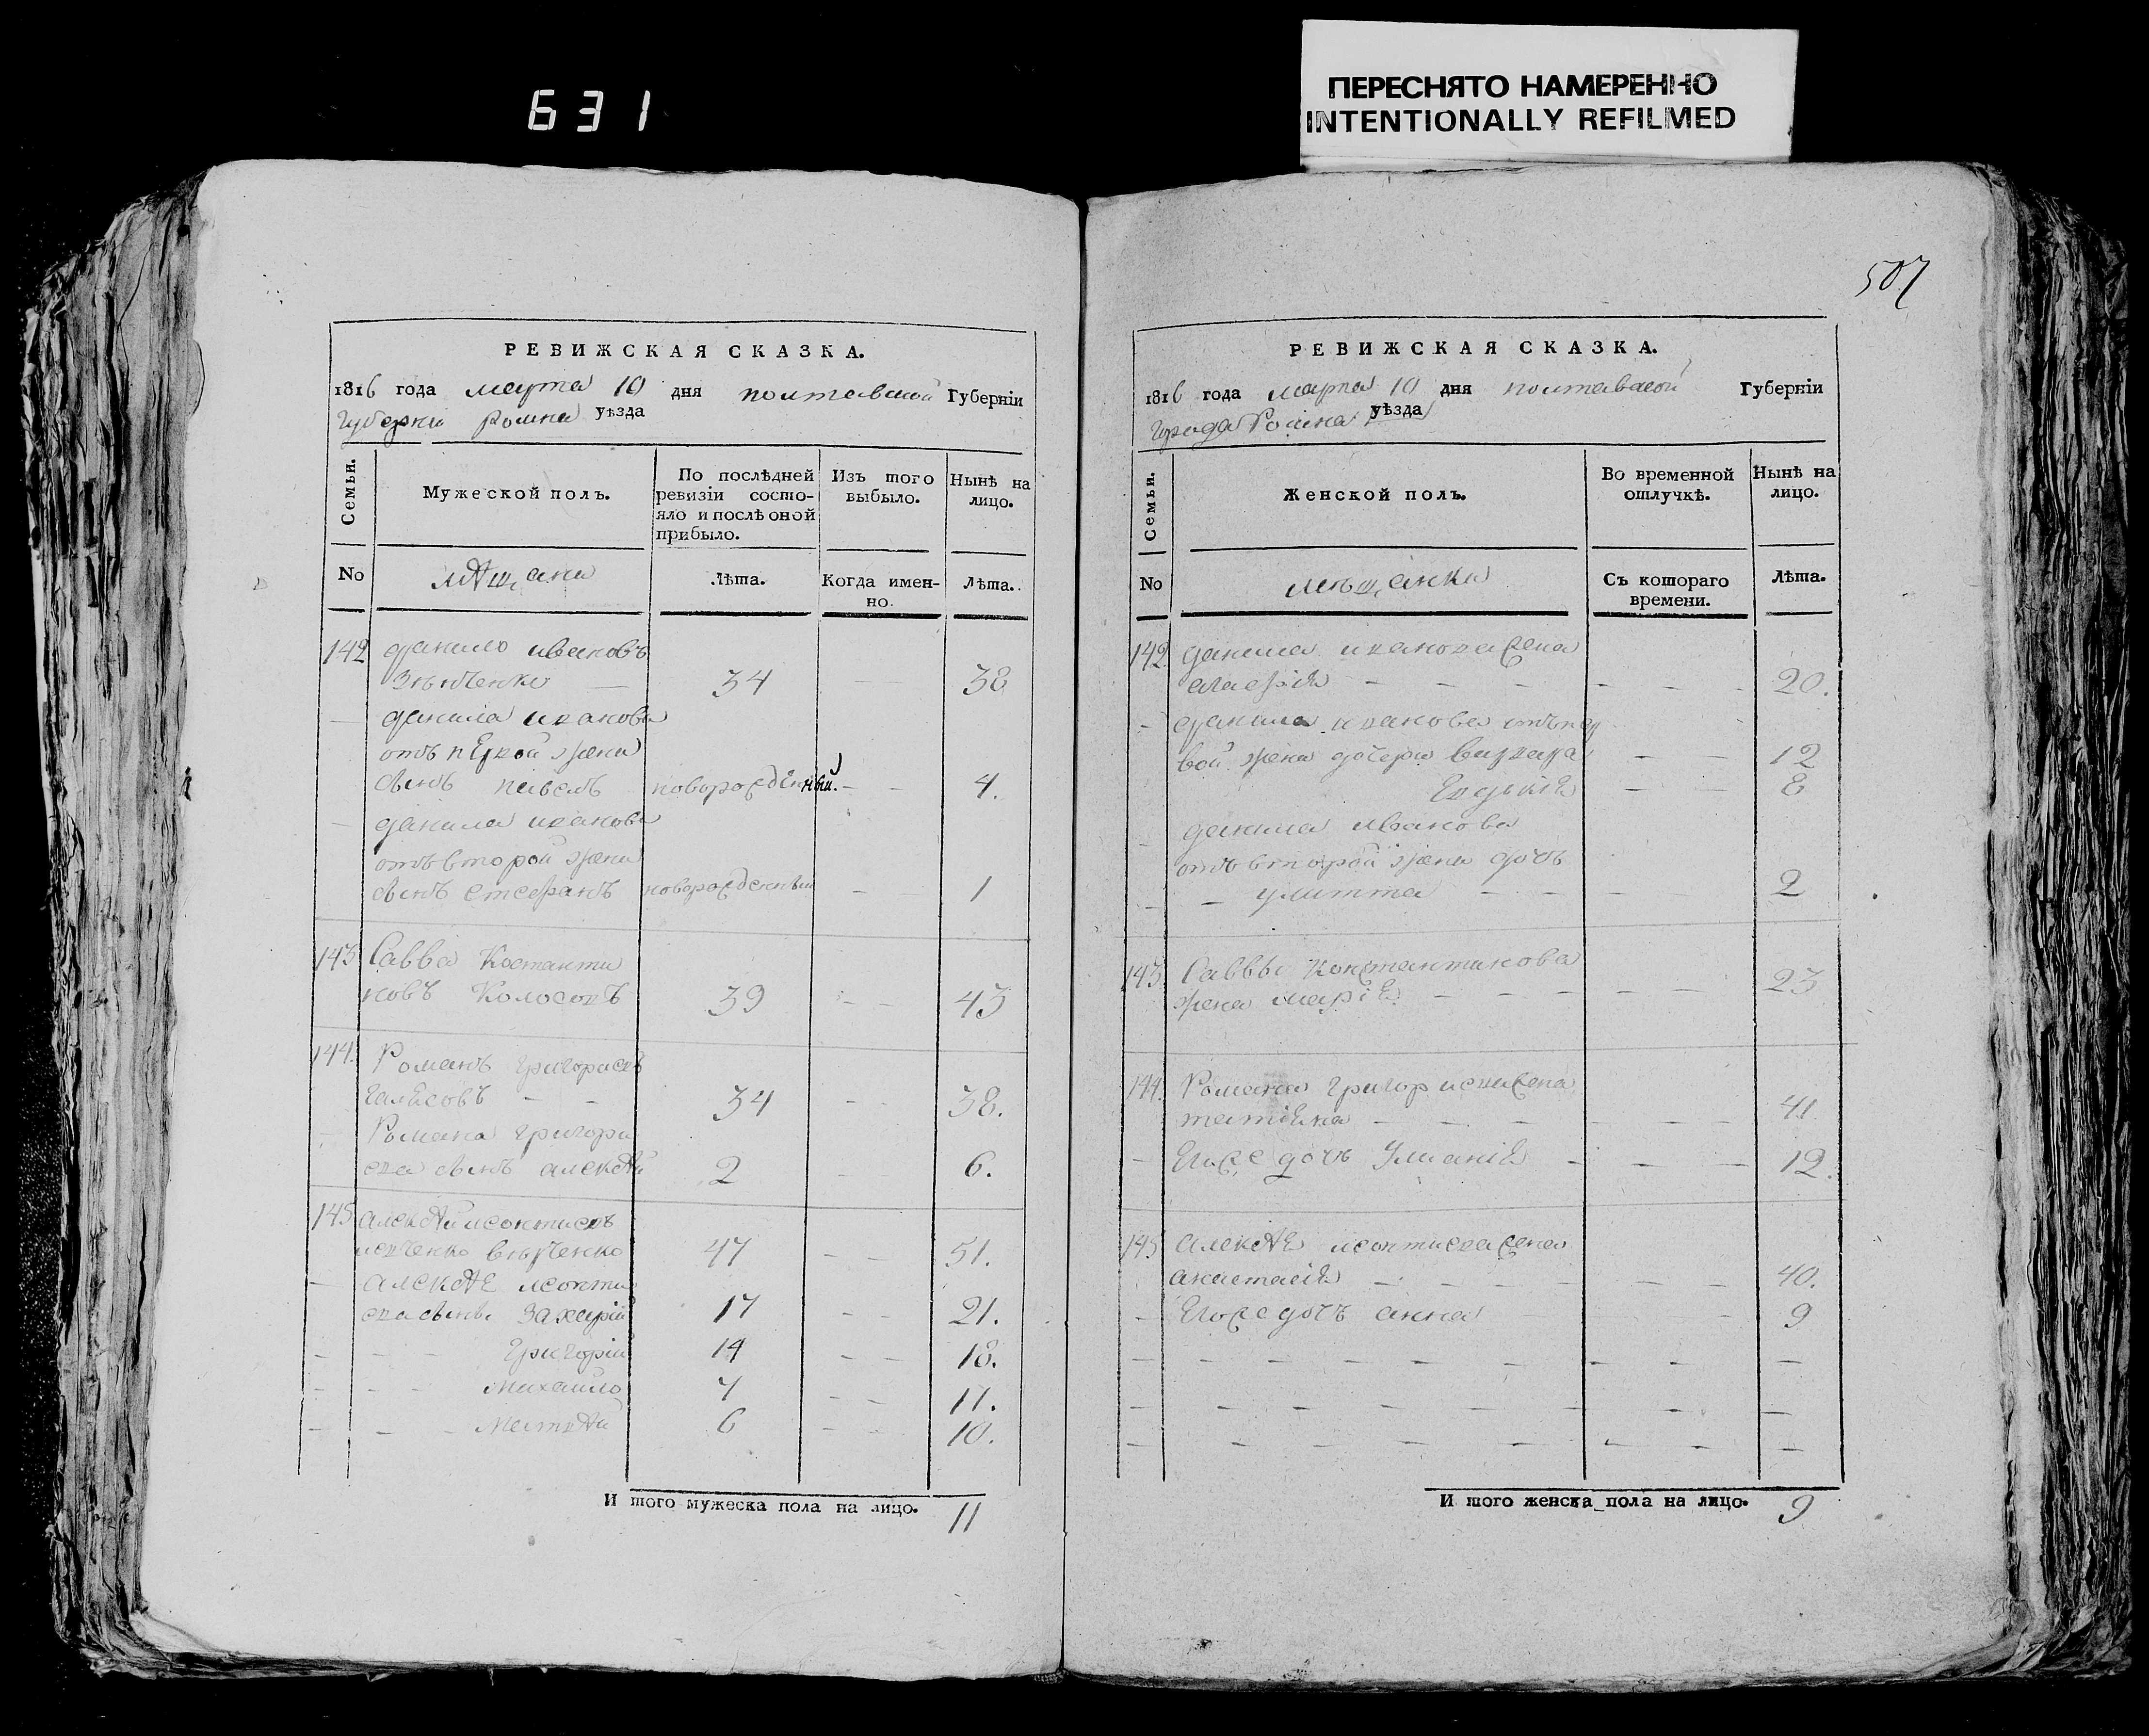 631
ПЕРЕСНЯТО НАМЕРЕННО
INTENTIONALLY REFILMED
507
РЕВИЖСКАЯ СКАЗКА.
1816 года марта 10 дня полтавской Губерніи
Губерни Ромна уѣзда
Семьи.
Мужеской полъ.
По послѣдней ревизіи состо-
яло и послѣ оной прибыло.
Изъ того выбыло.
Нынѣ на лицо.
No
мѣщане
лѣта.
Когда имен-
но.
лѣта.
142 данило ивановъ
34 38
данила иванова
отъ первой жени
сынъ павелъ новорожденный. 4.
данила иванова
отъ второй жени
сынъ стефанъ новорожденный 1
143 Савва Костанти
новъ Колосовъ 39 43
144. Романъ григориевъ
34 38.
Романа григори
ева сынъ алексѣй 2 6.
145 алексѣй леонтиевъ
47 51.
алексѣя леонти
ева сынъ захарій 17 21.
Григорій 14 18.
Михайло 7 11.
Матвѣй 6 10.
И того мужеска пола на лицо. 11
РЕВИЖСКАЯ СКАЗКА.
1816 года марта 10 дня полтавской Губерніи
города Ромна уѣзда
Семьи.
Женской полъ.
Во временной отлучкѣ.
Нынѣ на лицо.
No
мѣщанки
Съ котораго времени.
лѣта.
142 данила иванова жена
20.
данила иванова отъ пер
вой жени дочери варвара 12
Евдокія 8
данила иванова
отъ второй жени дочь
улитта 2
143. Саввы Константинова
жена марія 23
144. Романа григориева жена
татіяна 41
Егоже дочь Улианія 12.
145 алексѣя леонтиева жена
анастасія 40.
Егоже дочъ анна 9
И того женска пола на лицо. 9